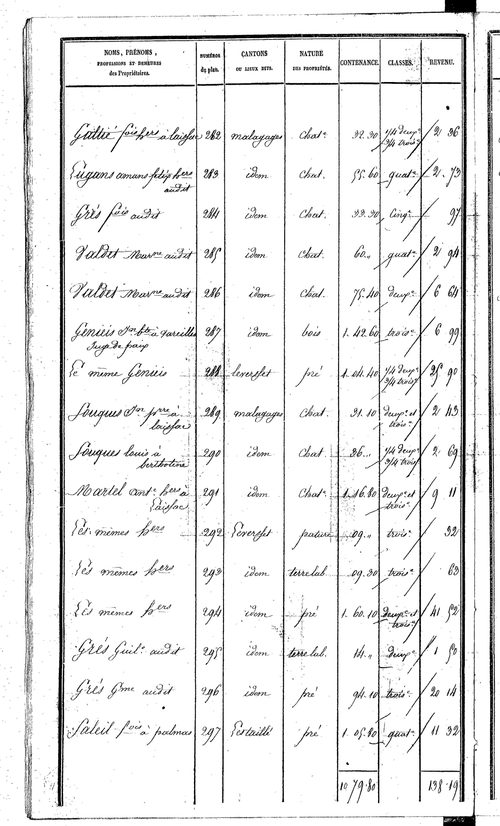 NOMS, PRÉNOMS, PROFESSIONS ET DEMEURES des Propriétaires. NUMÉROS du plan. CANTONS OU LIEUX DITS. NATURE DES PROPRIÉTÉS. CONTENANCE. CLASSES. REVENU.
fois hers à laissac 282 malagages chat. 32.30 1/4 deuxe 3/4 trois 2 36
amans hers audit 283 idem chat. 55.60 quat. 2. 73
Grés fois audit 284 idem chat. 32.30 Cinq. 97
Valdet audit 285 idem chat. 60.. quat. 2 94
Valdet audit 286 idem chat. 75.40 deuxe 6 64
Genieis à Vareilles Juge de paix 287 idem bois 1.42.60 trois. 6 99
Le même Genieis 288 pré 1.04.40 1/4 deuxe 3/4 trois 25 90
Souques à laissac 289 malagages chat. 31.10 deuxe et trois. 2 43
Souques louis à bertholène 290 idem chat. 36... 1/4 deuxe 3/4 trois 2 69
Martel ant. hers à Laissac 291 idem chat. 1.16.80 deuxe et trois. 9 11
Les mêmes hers 292 pature 09.. trois. 32
Les mêmes hers 293 idem terre lab. 09.30 trois. 63
Les mêmes hers 294 idem pré 1.60.10 deuxe et trois. 41 52
Grés Guil. audit 295 idem terre lab. 14.. deuxe 1 50
Grés Gme audit 296 idem pré 94.10 trois. 20 14
Saleil fois à palmas 297 Lestaillé pré 1.05.80 quat. 11 32
10 79.80 138.19